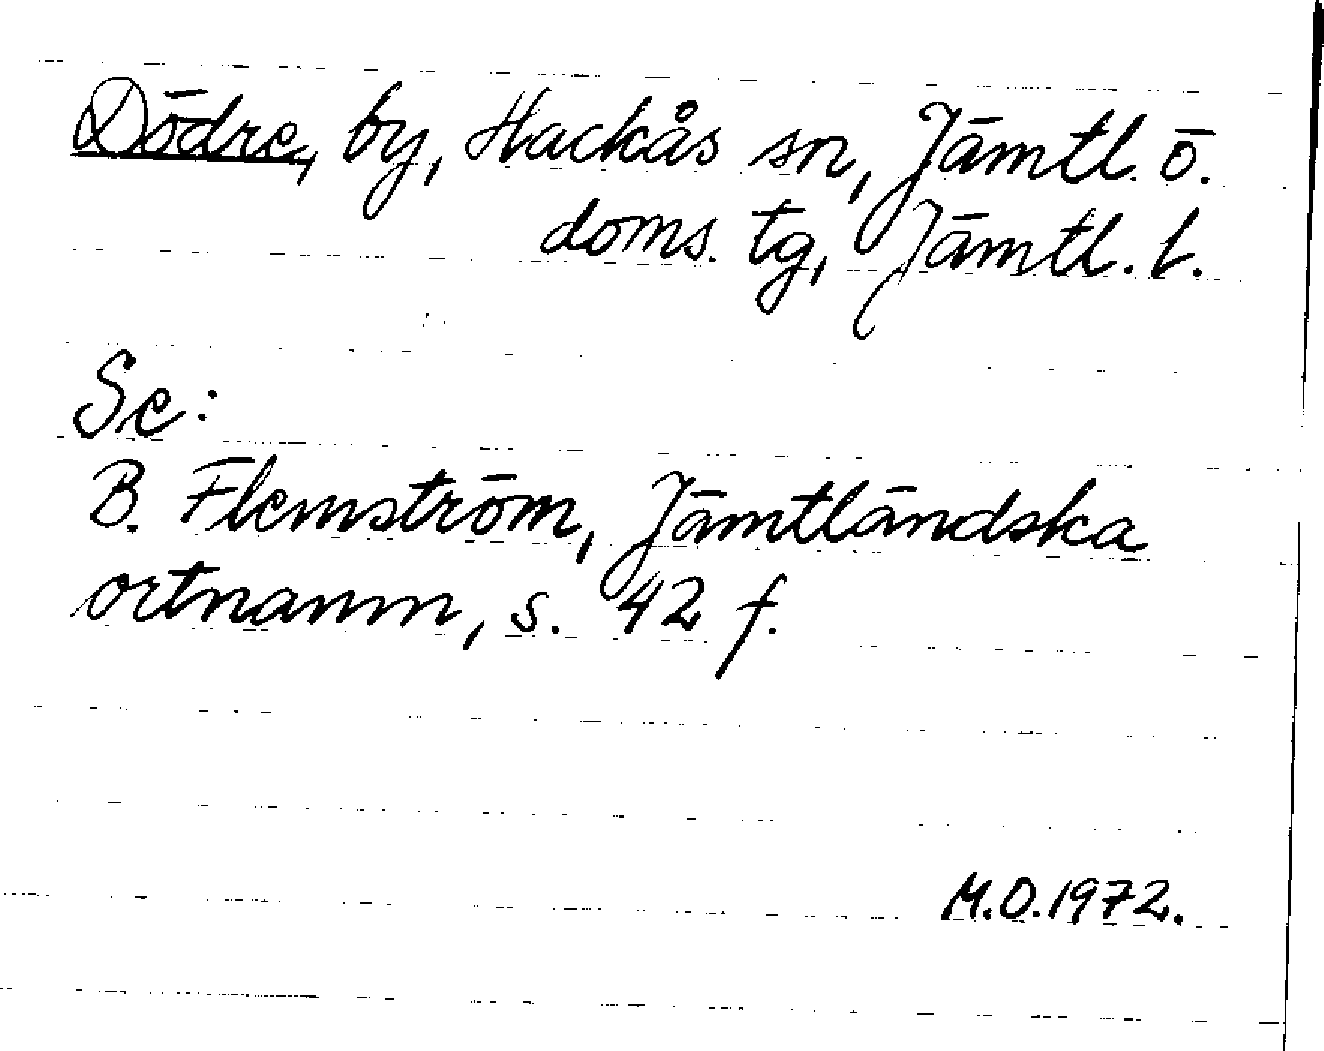 Dödre, by, Hackås sn, Jämtl. ö.
doms. tg, Jämtl. l.
Se:
B. Flemström, Jämtländska
ortnamn, s. 42 f.
M.O. 1972.